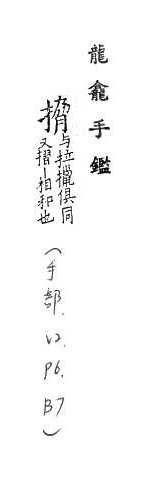 龍龕手鑑
与拉擸俱同
又摺丨相和也
(手部.V2.P6.B7)